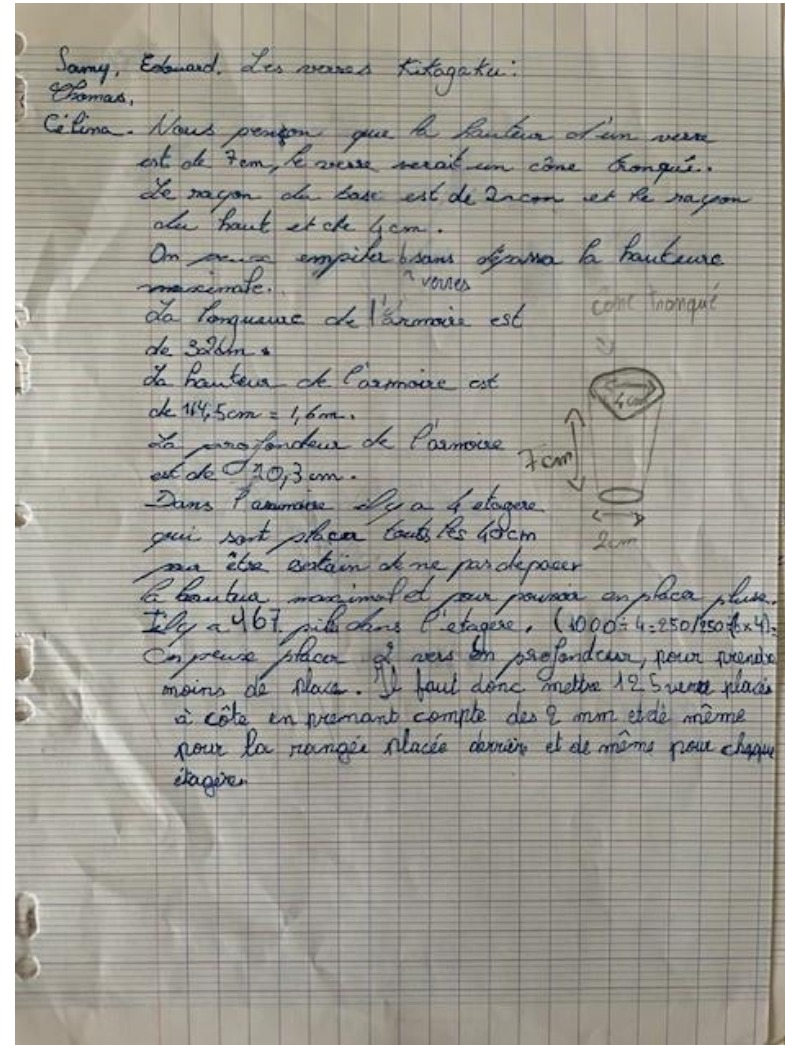 Samy, Edouard. Les verres Kitagaku:
Thomas,
Célina. Nous pençon que la hauteur d'un verre
est de 7cm, le verre serait un cône tronqué.
Le rayon du base est de 2 cm et le rayon
du haut et de 4cm.
On peux empiler 6 sans dépassa la hauteure
verres
maximale.
La longueure de l'armoire est
de 326m.
La hauteur de l'armoire est
de 164,5cm = 1,6m.
La profondeur de l'armoire
est de 20,3 cm.
Dans l'armoire il y a 4 etagere
qui sont placer touts les 40cm
pour être certain de ne pas depacer
la hauteur maximal et pour pouvoir en placer pluse.
Il y a 167 pile dans l'etagere. (1000÷4=250/250÷(6x4)=
On peuse placer 2 vers en profondeur, pour prendre
moins de place. Il faut donc mettre 125 verre placés
à côte en prenant compte des 2 mm et de même
pour la rangée placée derrière et de même pour chaque
étagère.
cône tronqué
4cm
7cm
2cm